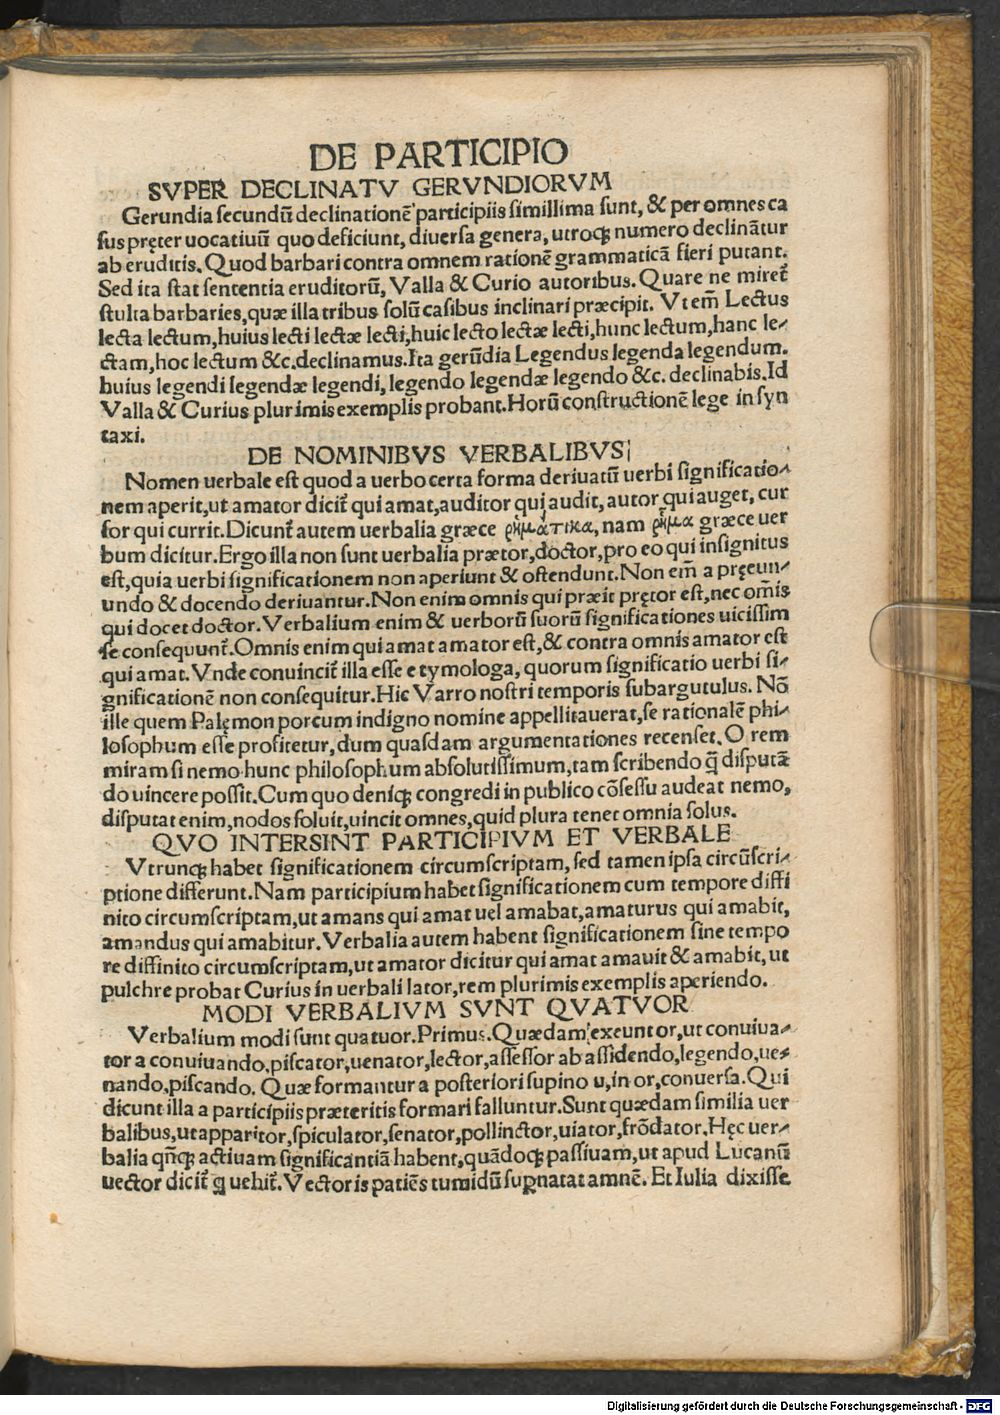 DE PARTICIPIO
SVPER DECLINATV GERVNDIORVM
Gerundia ſecundū declinationē participiis ſimillima ſunt, & per omnes ca
ſus pręter uocatiuū quo deficiunt, diuerſa genera, utroqꝫ numero declinātur
ab eruditis. Quod barbari contra omnem rationē grammaticā fieri putant.
Sed ita ſtat ſententia eruditorū, Valla & Curio autoribus. Quare ne miret᷑
ſtulta barbaries, quæ illa tribus ſolū caſibus inclinari præcipit. Vt em̄ Lectus
lecta lectum, huius lecti lectæ lecti, huic lecto lectæ lecti, hunc lectum, hanc le⸗
ctam, hoc lectum &c. declinamus. Ita gerūdia Legendus legenda legendum.
huius legendi legendæ legendi, legendo legendæ legendo &c. declinabis. Id
Valla & Curius plurimis exemplis probant. Horū conſtructionē lege in ſyn
taxi.
DE NOMINIBVS VERBALIBVS
Nomen uerbale eſt quod a uerbo certa forma deriuatū uerbi ſignificatio⸗
nem aperit, ut amator dicit᷑ qui amat, auditor qui audit, autor qui auget, cur
ſor qui currit. Dicunt᷑ autem uerbalia græce ῥηματικα, nam ῥημα græce uer
bum dicitur. Ergo illa non ſunt uerbalia prætor, doctor, pro eo qui inſignitus
eſt, quia uerbi ſignificationem non aperiunt & oſtendunt. Non em̄ a pręeun⸗
undo & docendo deriuantur. Non enim omnis qui præit prętor eſt, nec om̄is
qui docet doctor. Verbalium enim & uerborū ſuorū ſignificationes uiciſſim
ſe conſequunt᷑. Omnis enim qui amat amator eſt, & contra omnis amator eſt
qui amat. Vnde conuincit᷑ illa eſſe etymologa, quorum ſignificatio uerbi ſi⸗
gnificationē non conſequitur. Hic Varro noſtri temporis ſubargutulus. Nō
ille quem Palęmon porcum indigno nomine appellitauerat, ſe rationalē phi⸗
loſophum eſſe profitetur, dum quaſdam argumentationes recenſet. O rem
miram ſi nemo hunc philoſophum abſolutiſſimum, tam ſcribendo q̄ diſputā
do uincere poſſit. Cum quo deniqꝫ congredi in publico cōſeſſu audeat nemo,
diſputat enim, nodos ſoluit, uincit omnes, quid plura tenet omnia ſolus.
QVO INTERSINT PARTICIPIVM ET VERBALE
Vtrunqꝫ habet ſignificationem circumſcriptam, ſed tamen ipſa circūſcri⸗
ptione differunt. Nam participium habet ſignificationem cum tempore diffi
nito circumſcriptam, ut amans qui amat uel amabat, amaturus qui amabit,
amandus qui amabitur. Verbalia autem habent ſignificationem ſine tempo
re diffinito circumſcriptam, ut amator dicitur qui amat amauit & amabit, ut
pulchre probat Curius in uerbali lator, rem plurimis exemplis aperiendo.
MODI VERBALIVM SVNT QVATVOR
Verbalium modi ſunt quatuor. Primus. Quædam exeunt or, ut conuiua⸗
tor a conuiuando, piſcator, uenator, lector, aſſeſſor ab aſſidendo, legendo, ue⸗
nando, piſcando. Quæ formantur a poſteriori ſupino u, in or, conuerſa. Qui
dicunt illa a participiis præteritis formari falluntur. Sunt quædam ſimilia uer
balibus, ut apparitor, ſpiculator, ſenator, pollinctor, uiator, frōdator. Hęc uer⸗
balia qn̄qꝫ actiuam ſignificantiā habent, quādoqꝫ paſſiuam, ut apud Lucanū
uector dicit᷑ q uehit᷑. Vectoris patiēs tumidū ſuꝑnatat amnē. Et Iulia dixiſſe
Digitalisierung gefördert durch die Deutsche Forschungsgemeinschaft - DFG